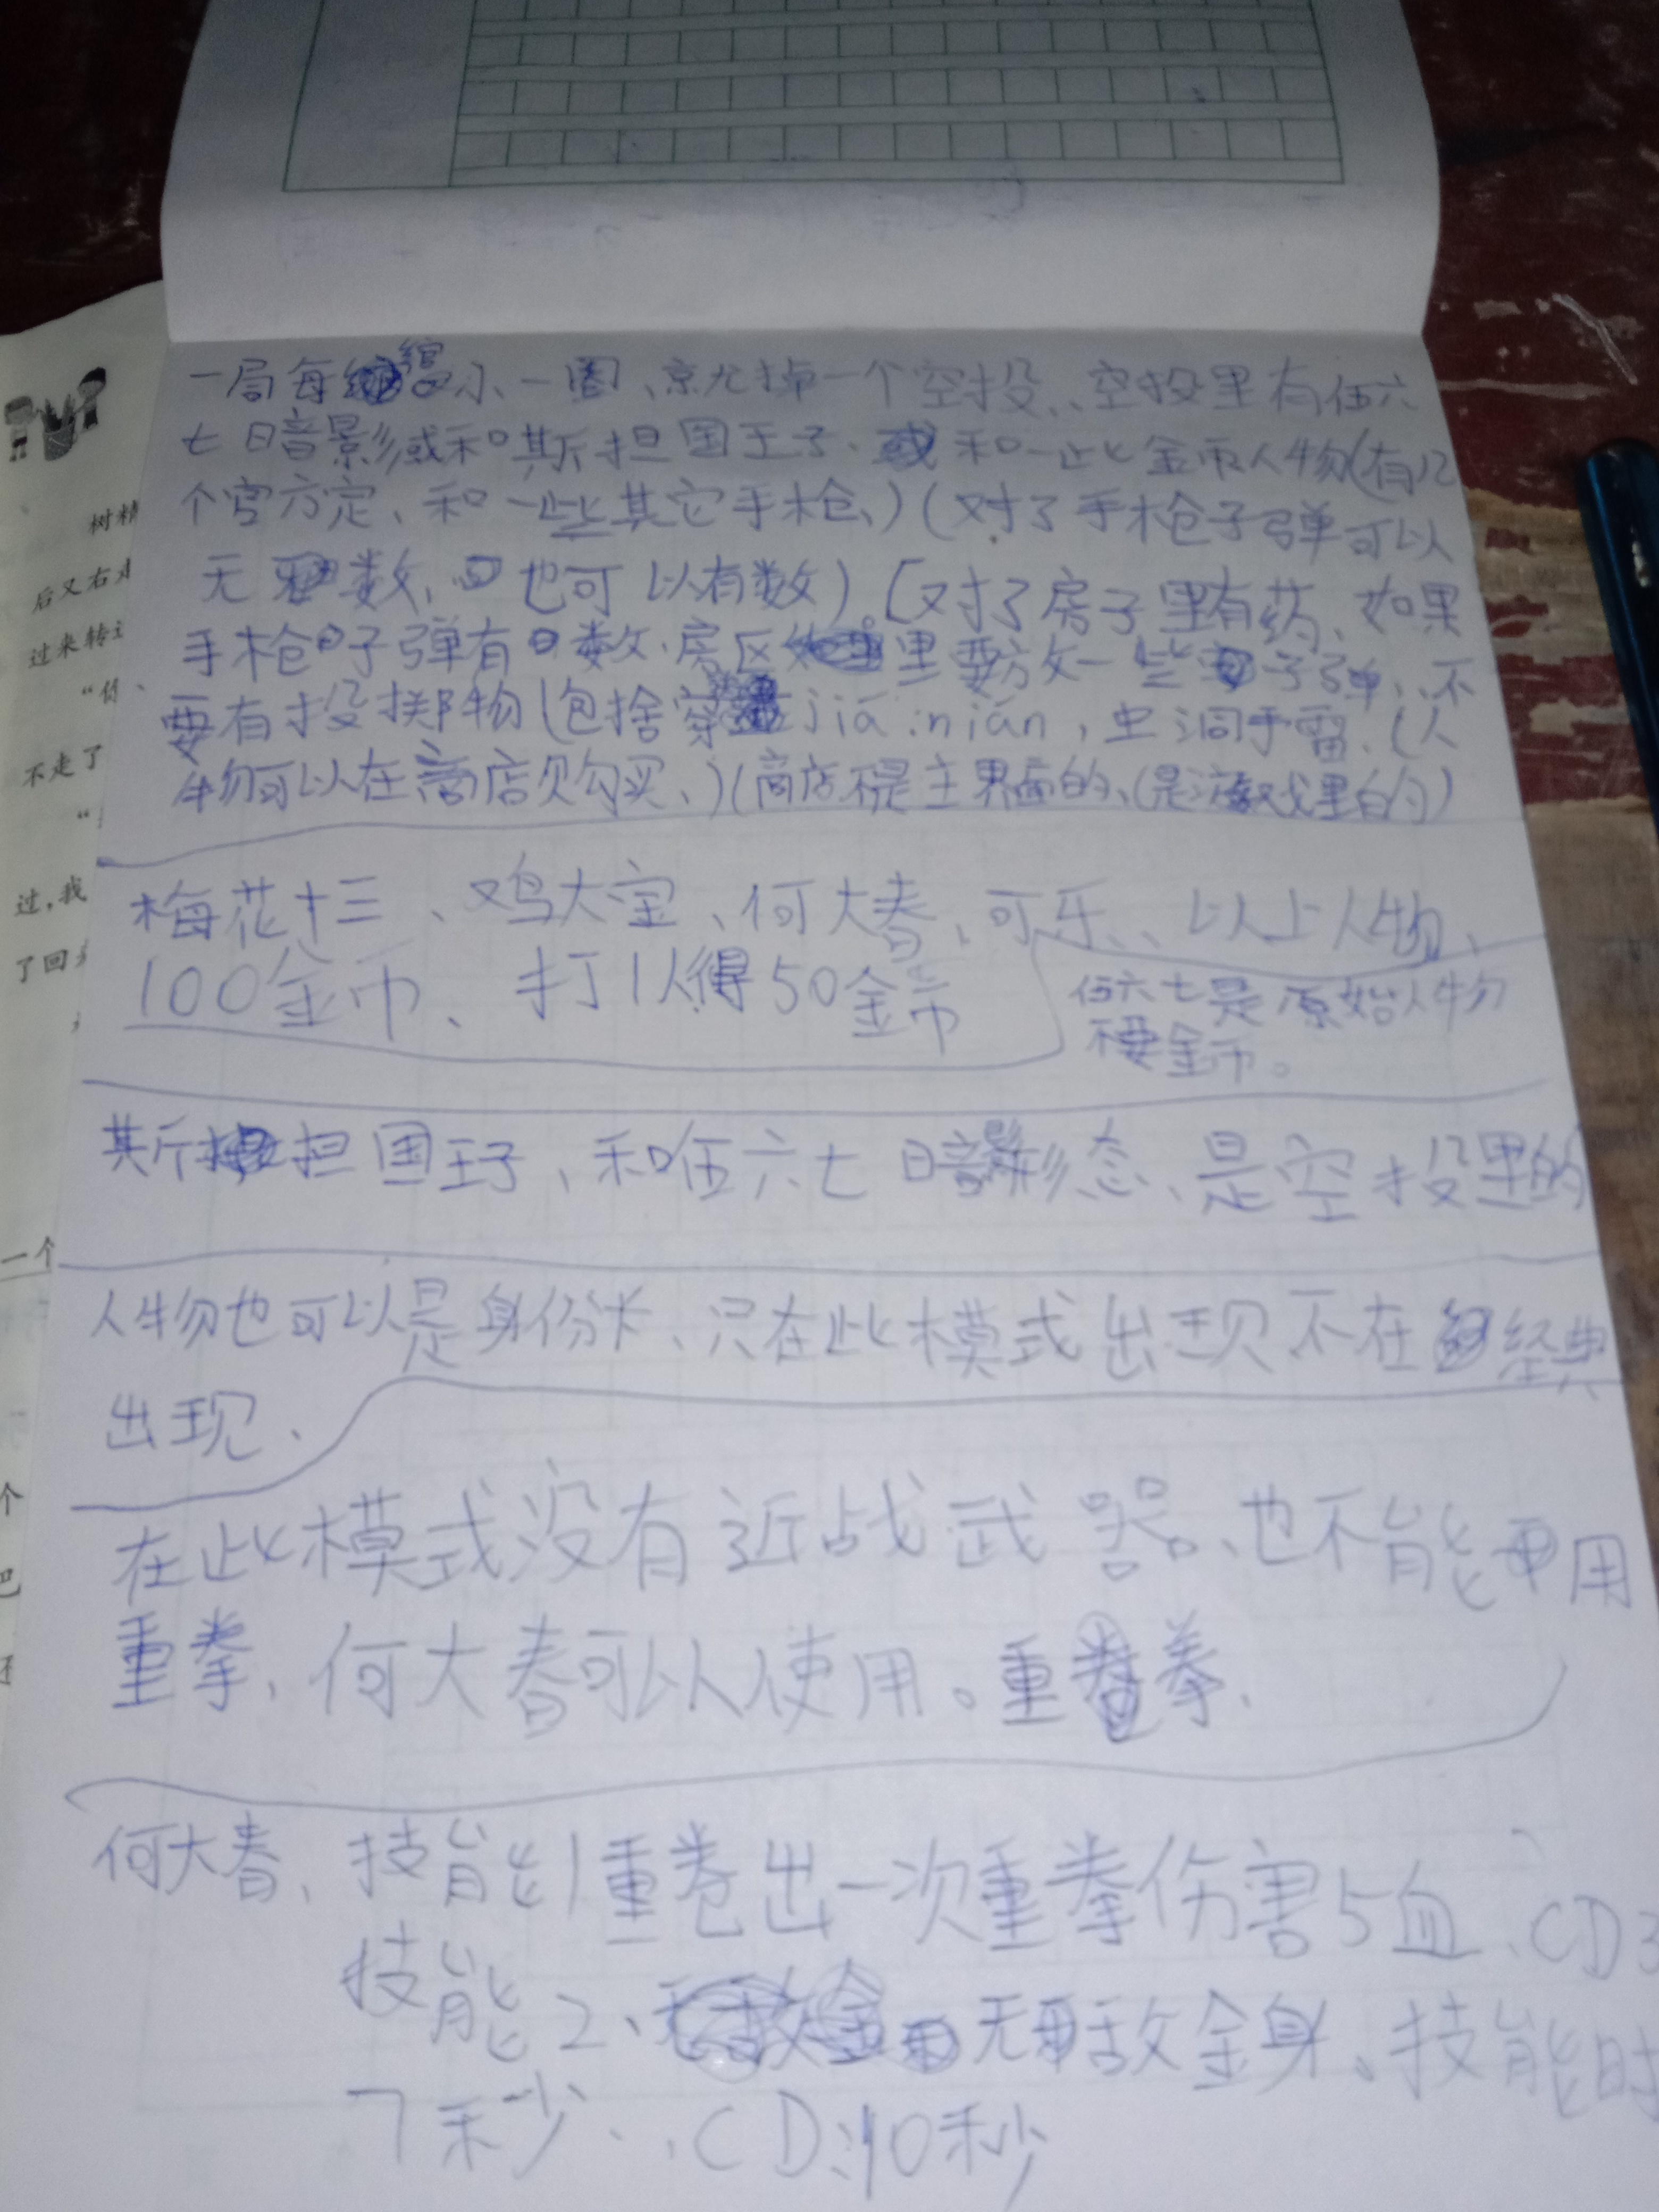 一局每缩小一圈、就掉一个空投、、空投里有伍六
七暗影或和斯坦国王子、和一些金币人物(有几
个官方定、和一些其它手枪、)(对了手枪子弹可以
无数、也可以有数)。[对了房子里有药、如果
手枪子弹有数、房区里要放一些子弹、、不
要有投掷物(包括 jiá nián,虫洞手雷、(人
物可以在商店购买、)(商店不是主界面的、(是游戏里的)
梅花十三、鸡大宝、何大春、可乐、、以上人物、
100金币、打1人得50金币
伍六七是原始人物
不要金币。
斯坦国王子、和伍六七暗影形态、是空投里的
人物也可以是身份卡、只在此模式出现不在经典
出现、
在此模式没有近战武器、也不能用
重拳、何大春可以使用。重拳、
何大春、技能1重卷出一次重拳伤害5血、CD3
技能2、无敌金身、技能时
7秒、、CD:10秒
树精
后又右走
过来转过
“你
不走了
过,我
了回来
一个
个
把